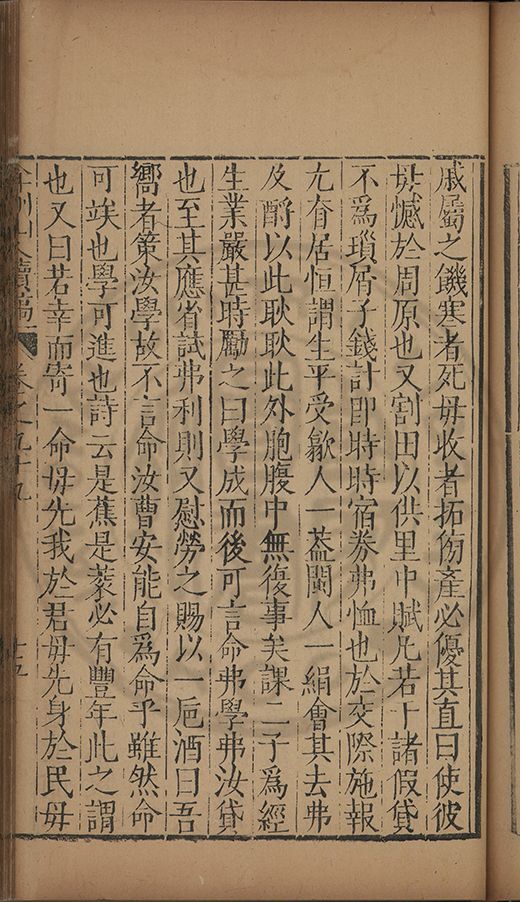 戚屬之饑寒者死毋收者拓傍產必優其直曰使彼
毋憾於周原也又割田以供里中賦凡若干諸假貸
不爲瑣屑子錢計即時時宿券弗恤也於交際施報
尢脊居恒謂生平受歙人一葢閩人一絹會其去弗
及酹以此耿耿此外胞腹中無復事矣課二子爲經
生業嚴甚時勵之曰學成而後可言命弗學弗汝貸
也至其應省試弗利則又慰勞之賜以一巵酒曰吾
嚮者策汝學故不言命汝曹安能自爲命乎雖然命
可竢也學可進也詩云是藨是蔉必有豐年此之謂
也又曰若幸而寄一命毋先我於君毋先身於民毋
卷之九十九
十五